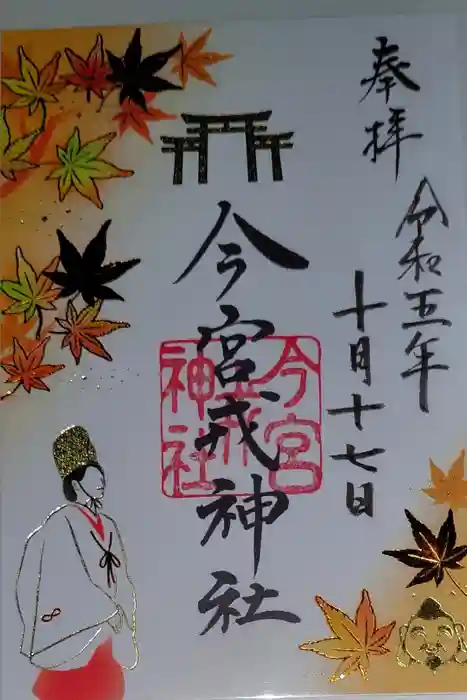 奉拝
令和五年
十月十七日
今宮戎神社
今宮戎神社